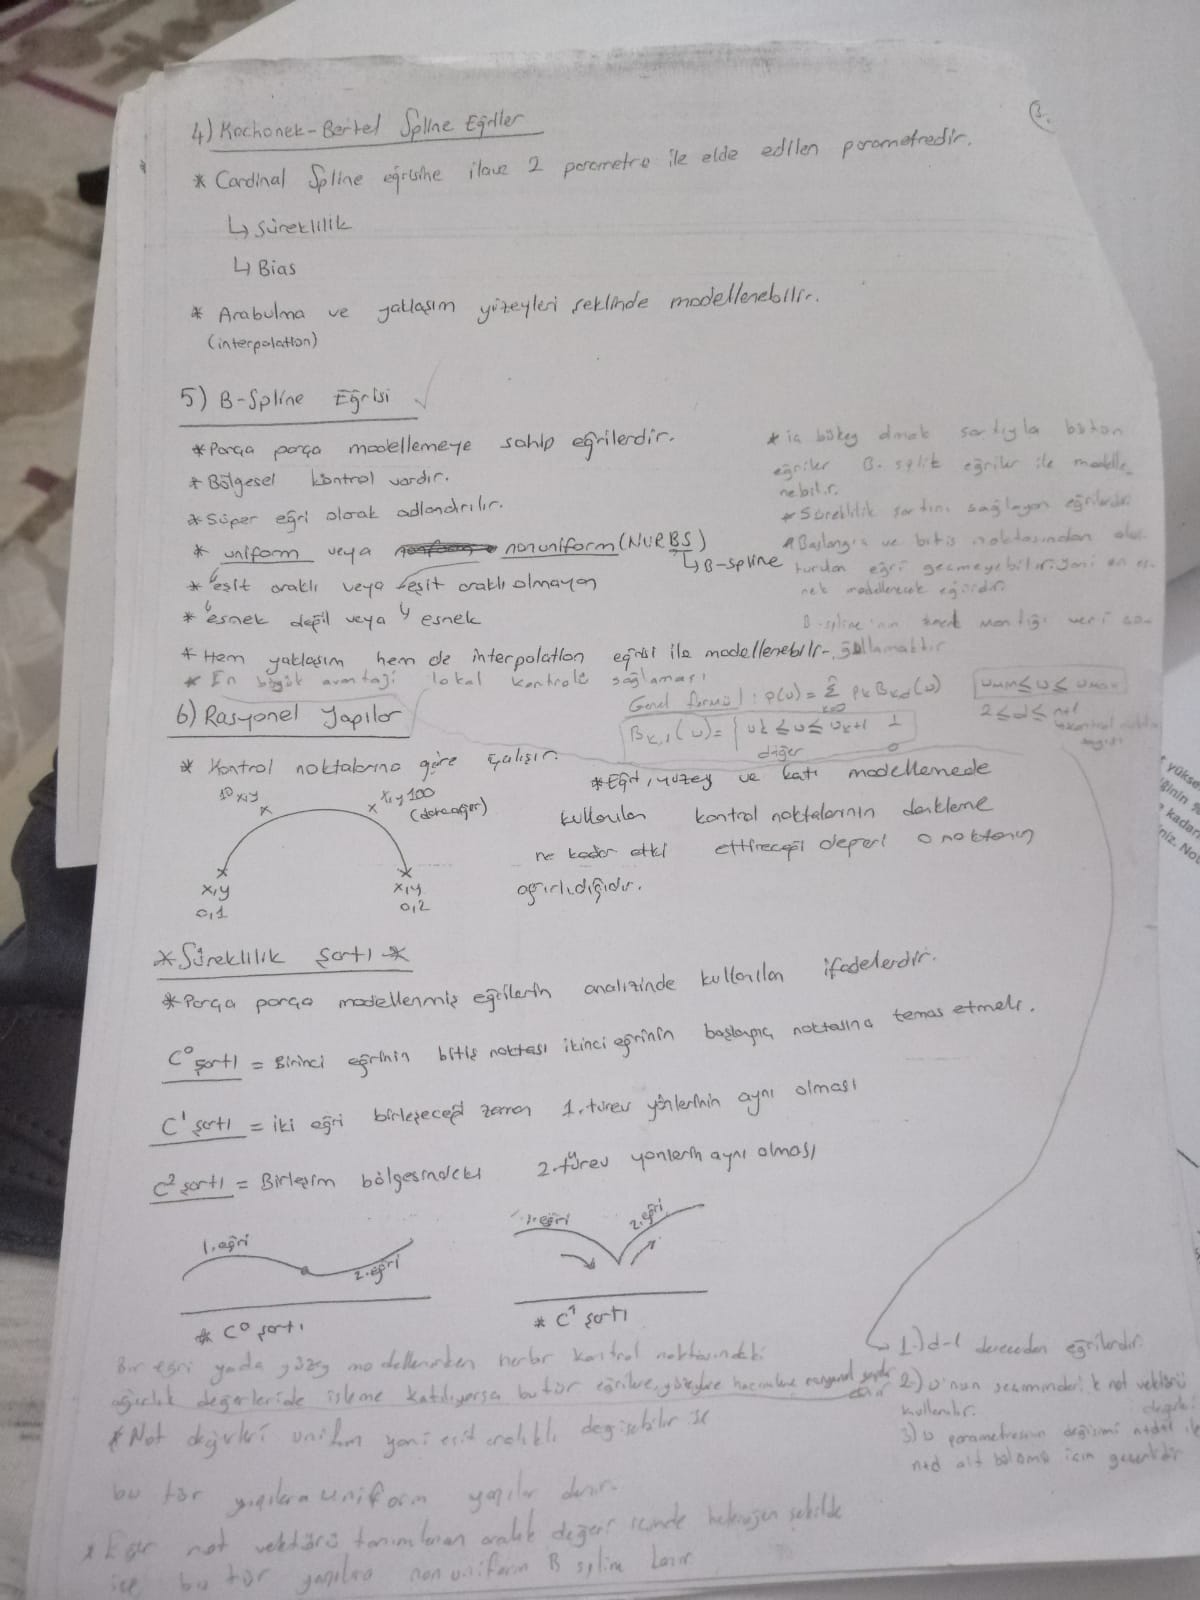 3.
4) Kochonek-Bertel Spline Eğriler
* Cardinal Spline eğrisine ilave 2 parametre ile elde edilen parametredir.
↳ Süreklilik
↳ Bias
* Arabulma ve yaklaşım yüzeyleri şeklinde modellenebilir.
(interpolation)
5) B-Spline Eğrisi ✓
* Parça parça modellemeye sahip eğrilerdir.
* Bölgesel kontrol vardır.
* Süper eğri olarak adlandırılır.
* uniform veya nonuniform (NURBS)
↳ B-spline
* eşit aralıklı veya eşit aralıklı olmayan
* esnek değil veya esnek
* Hem yaklaşım hem de interpolation eğrisi ile modellenebilir.
* En büyük avantajı lokal kontrolü sağlaması
* iç bükey olmak şartıyla bütün
eğriler B. eğriler ile modelle
nebilir.
* Süreklilik şartını sağlayan eğrilerdir.
* Başlangıç ve bitiş noktasından oluş
turulan eğri geçmeyebilir. Yani en es
nek modellenecek eğridir.
B-spline'nın mantığı
Genel formül: P(u) = Σ Pk Bk,d(u)
k=0
umin ≤ u ≤ umax
2 ≤ d ≤ n+1
kontrol noktası
sayısı
Bk,1(u) = { uk ≤ u ≤ uk+1 1
diğer 0
6) Rasyonel Yapılar
* Kontrol noktalarına göre çalışır.
10 x,y
x,y 100
x,y
0,1
x,y
0,2
* Eğri, yüzey ve katı modellemede
kullanılan kontrol noktalarının denkleme
ne kadar etki ettireceği değeri o noktanın
ağırlıdığıdır.
* Süreklilik Şartı *
* Parça parça modellenmiş eğrilerin analizinde kullanılan ifadelerdir.
C⁰ şartı = Birinci eğrinin bitiş noktası ikinci eğrinin başlangıç noktasına temas etmeli.
C¹ şartı = iki eğri birleşeceği zaman 1. türev yönlerinin aynı olması
C² şartı = Birleşim bölgesindeki 2. türev yönlerin aynı olması
1. eğri
2. eğri
* C⁰ şartı
1. eğri
2. eğri
* C¹ şartı
Bir eğri yada yüzey modellenirken herbir kontrol noktasındaki
ağırlık değerleride işleme katılıyorsa bu tür eğrilere, yüzeylere hacimlere rasyonel yapılar
denir
* Not değerleri uniform yani eşit aralıklı değişebilir ise
bu tür yapılara uniform yapılar denir.
* Eğer not vektörü tanımlanan aralık değeri içinde heterojen şekilde
ise bu tür yapılara non uniform B spline denir
1.) d-1 dereceden eğrilerdir.
2.) u'nun seçiminde k not vektörü
değerleri
kullanılır.
3) u parametresinin değişimi n+d
n+d alt bölümü için gereklidir